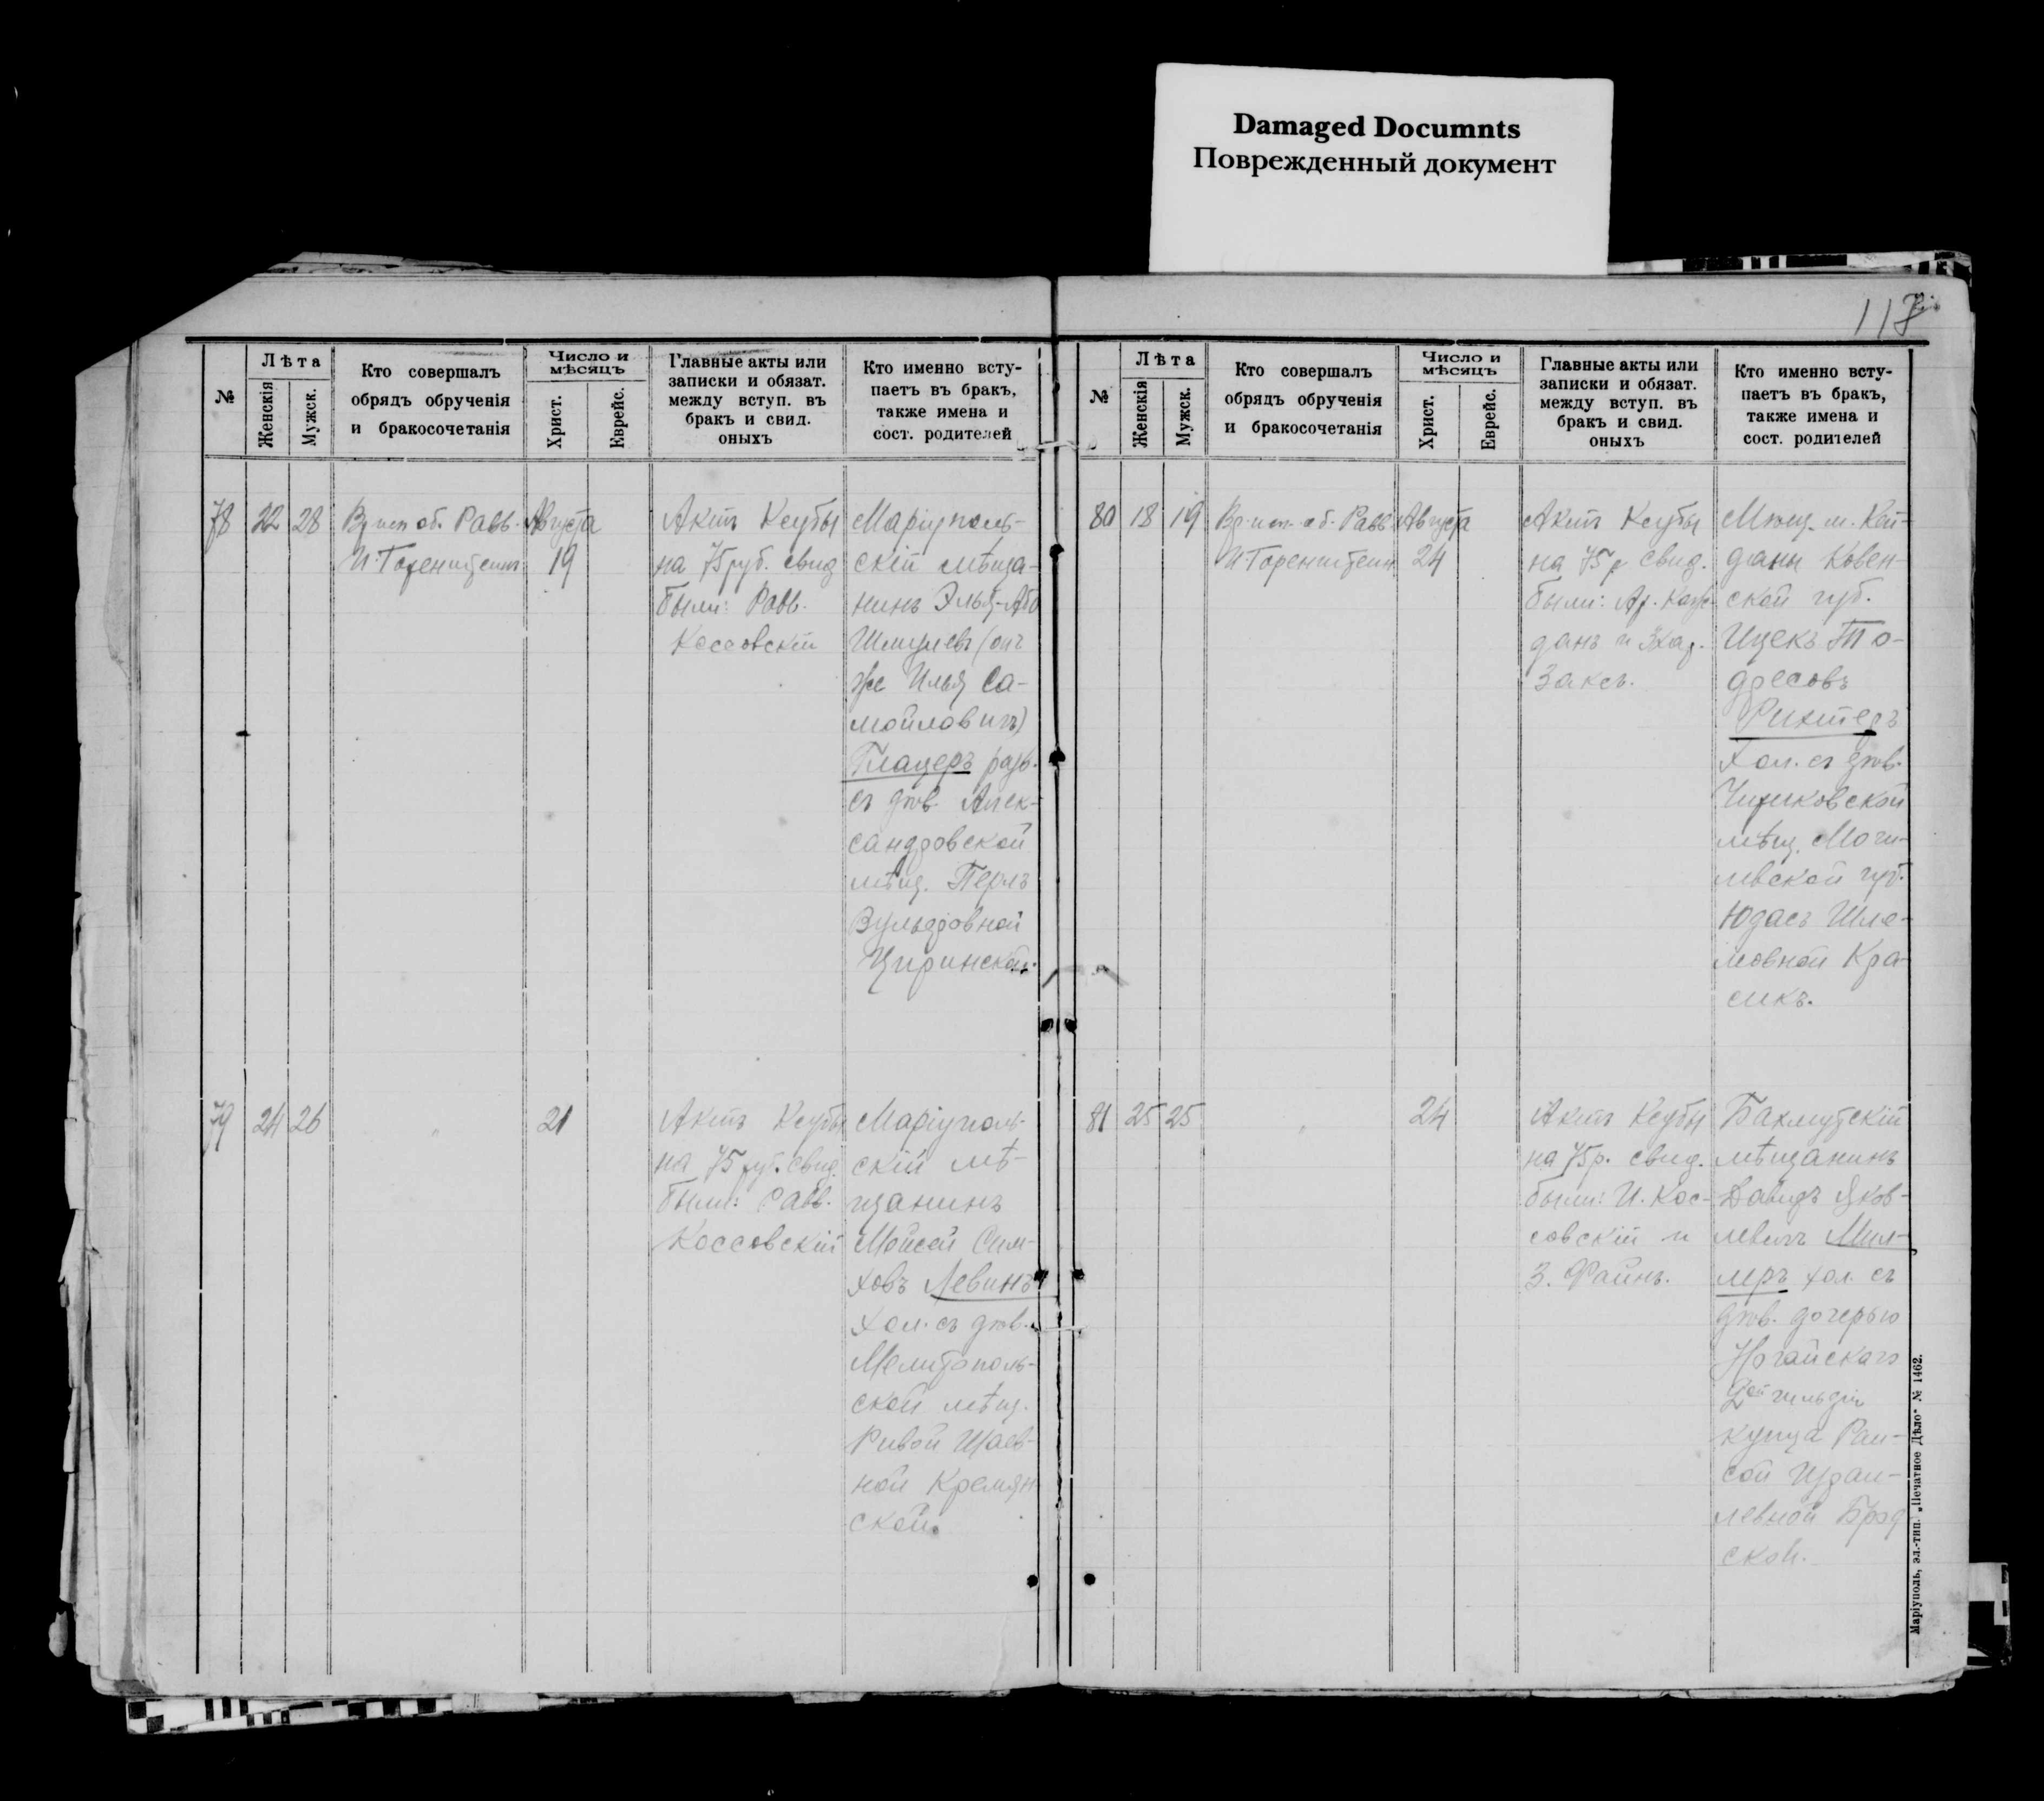 Damaged Documnts
Поврежденный документ
№
Лѣта
Женскія
Мужск.
Кто совершалъ
обрядъ обрученія
и бракосочетанія
Число и
мѣсяцъ
Христ.
Еврейс.
Главные акты или
записки и обязат.
между вступ. въ
бракъ и свид.
оныхъ
Кто именно всту-
паетъ въ бракъ,
также имена и
сост. родителей
78
22
28
Вр исп об. Равв.
И. Горенштейнъ
Августа
19
Актъ Ксубы
на 75 руб. свид
были: Равв.
Коссовскій
Маріуполь-
скій мѣща-
нинъ Элья-Або
Шмулевъ (онъ
же Илья Са-
мойловичъ)
Глацеръ разв.
съ дѣв. Алек-
сандровской
мѣщ. Перлъ
Вульфовной
Циринской.
79
24
26
21
Актъ Ксубы
на 75 руб. свид.
были: Равв.
Коссовскій
Маріуполь-
скій мѣ-
щанинъ
Мойсей Сим-
ховъ Левинъ
хол. съ дѣв.
Мелитополь-
ской мѣщ.
Ривой Шаев-
ной Кремян
ской.
118
№
Лѣта
Женскія
Мужск.
Кто совершалъ
обрядъ обрученія
и бракосочетанія
Число и
мѣсяцъ
Христ.
Еврейс.
Главные акты или
записки и обязат.
между вступ. въ
бракъ и свид.
оныхъ
Кто именно всту-
паетъ въ бракъ,
также имена и
сост. родителей
80
18
19
Вр. исп. об. Равв
И Горенштейн
Августа
24
Актъ Ксубы
на 75 р свид.
были: Ар. Каж-
данъ и
Заксъ.
Мѣщ. м. Кей-
даны Ковен-
ской губ.
Ицекъ То-
дресовъ
Рихтеръ
хол. съ дѣв.
Чириковской
мѣщ. Моги-
левской губ.
Юдасъ Шле-
мовной Кра-
сикъ.
81
25
25
24
Актъ Ксубы
на 75 р. свид.
были: И. Кос-
совскій и
З. Файнъ.
Бахмутскій
мѣщанинъ
Давидъ Яков-
левичъ Мил-
леръ хол. съ
дѣв. дочерью
Ногайскаго
2ой гильдіи
купца Раи-
сой Израи-
левной Брод
ской.
Маріуполь, эл.-тип. „Печатное Дѣло“ № 1462.